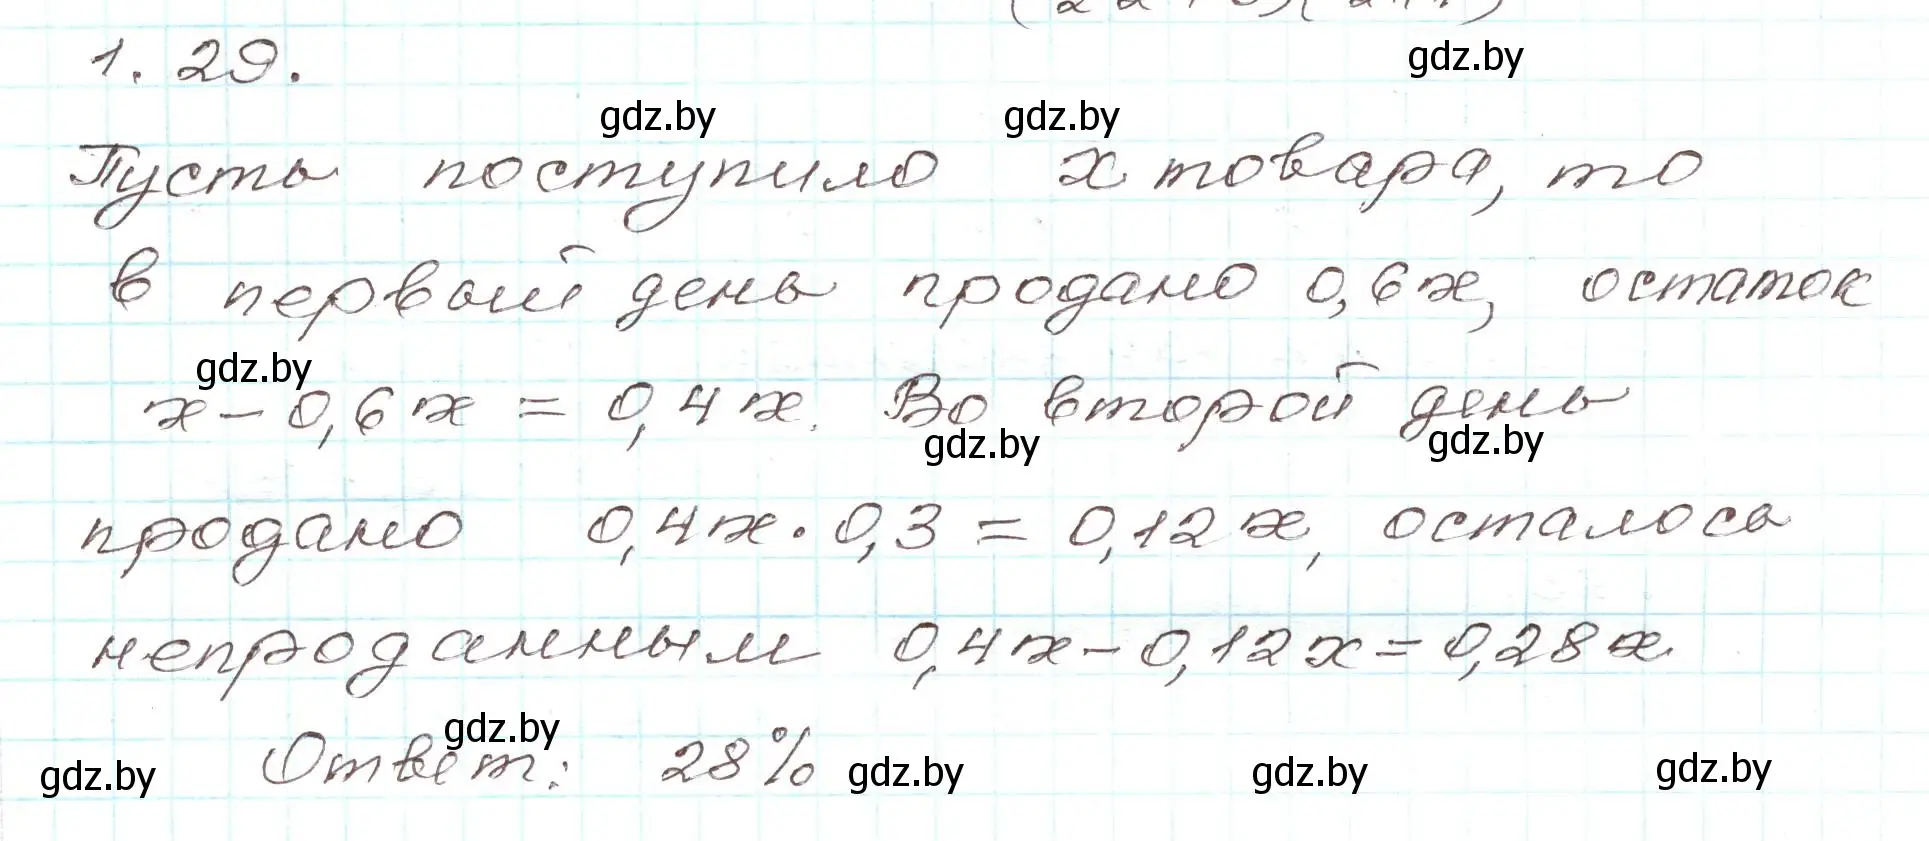 1.29.
gdz.by
gdz.by gdz.by
Пусть поступило x товара, то
в первый день продано 0,6x, остаток
gdz.by
x - 0,6x = 0,4x. Во второй день
gdz.by gdz.by
продано 0,4x · 0,3 = 0,12x, осталось
непроданным 0,4x - 0,12x = 0,28x
gdz.by
Ответ: 28%
gdz.by gdz.by gdz.by gdz.by